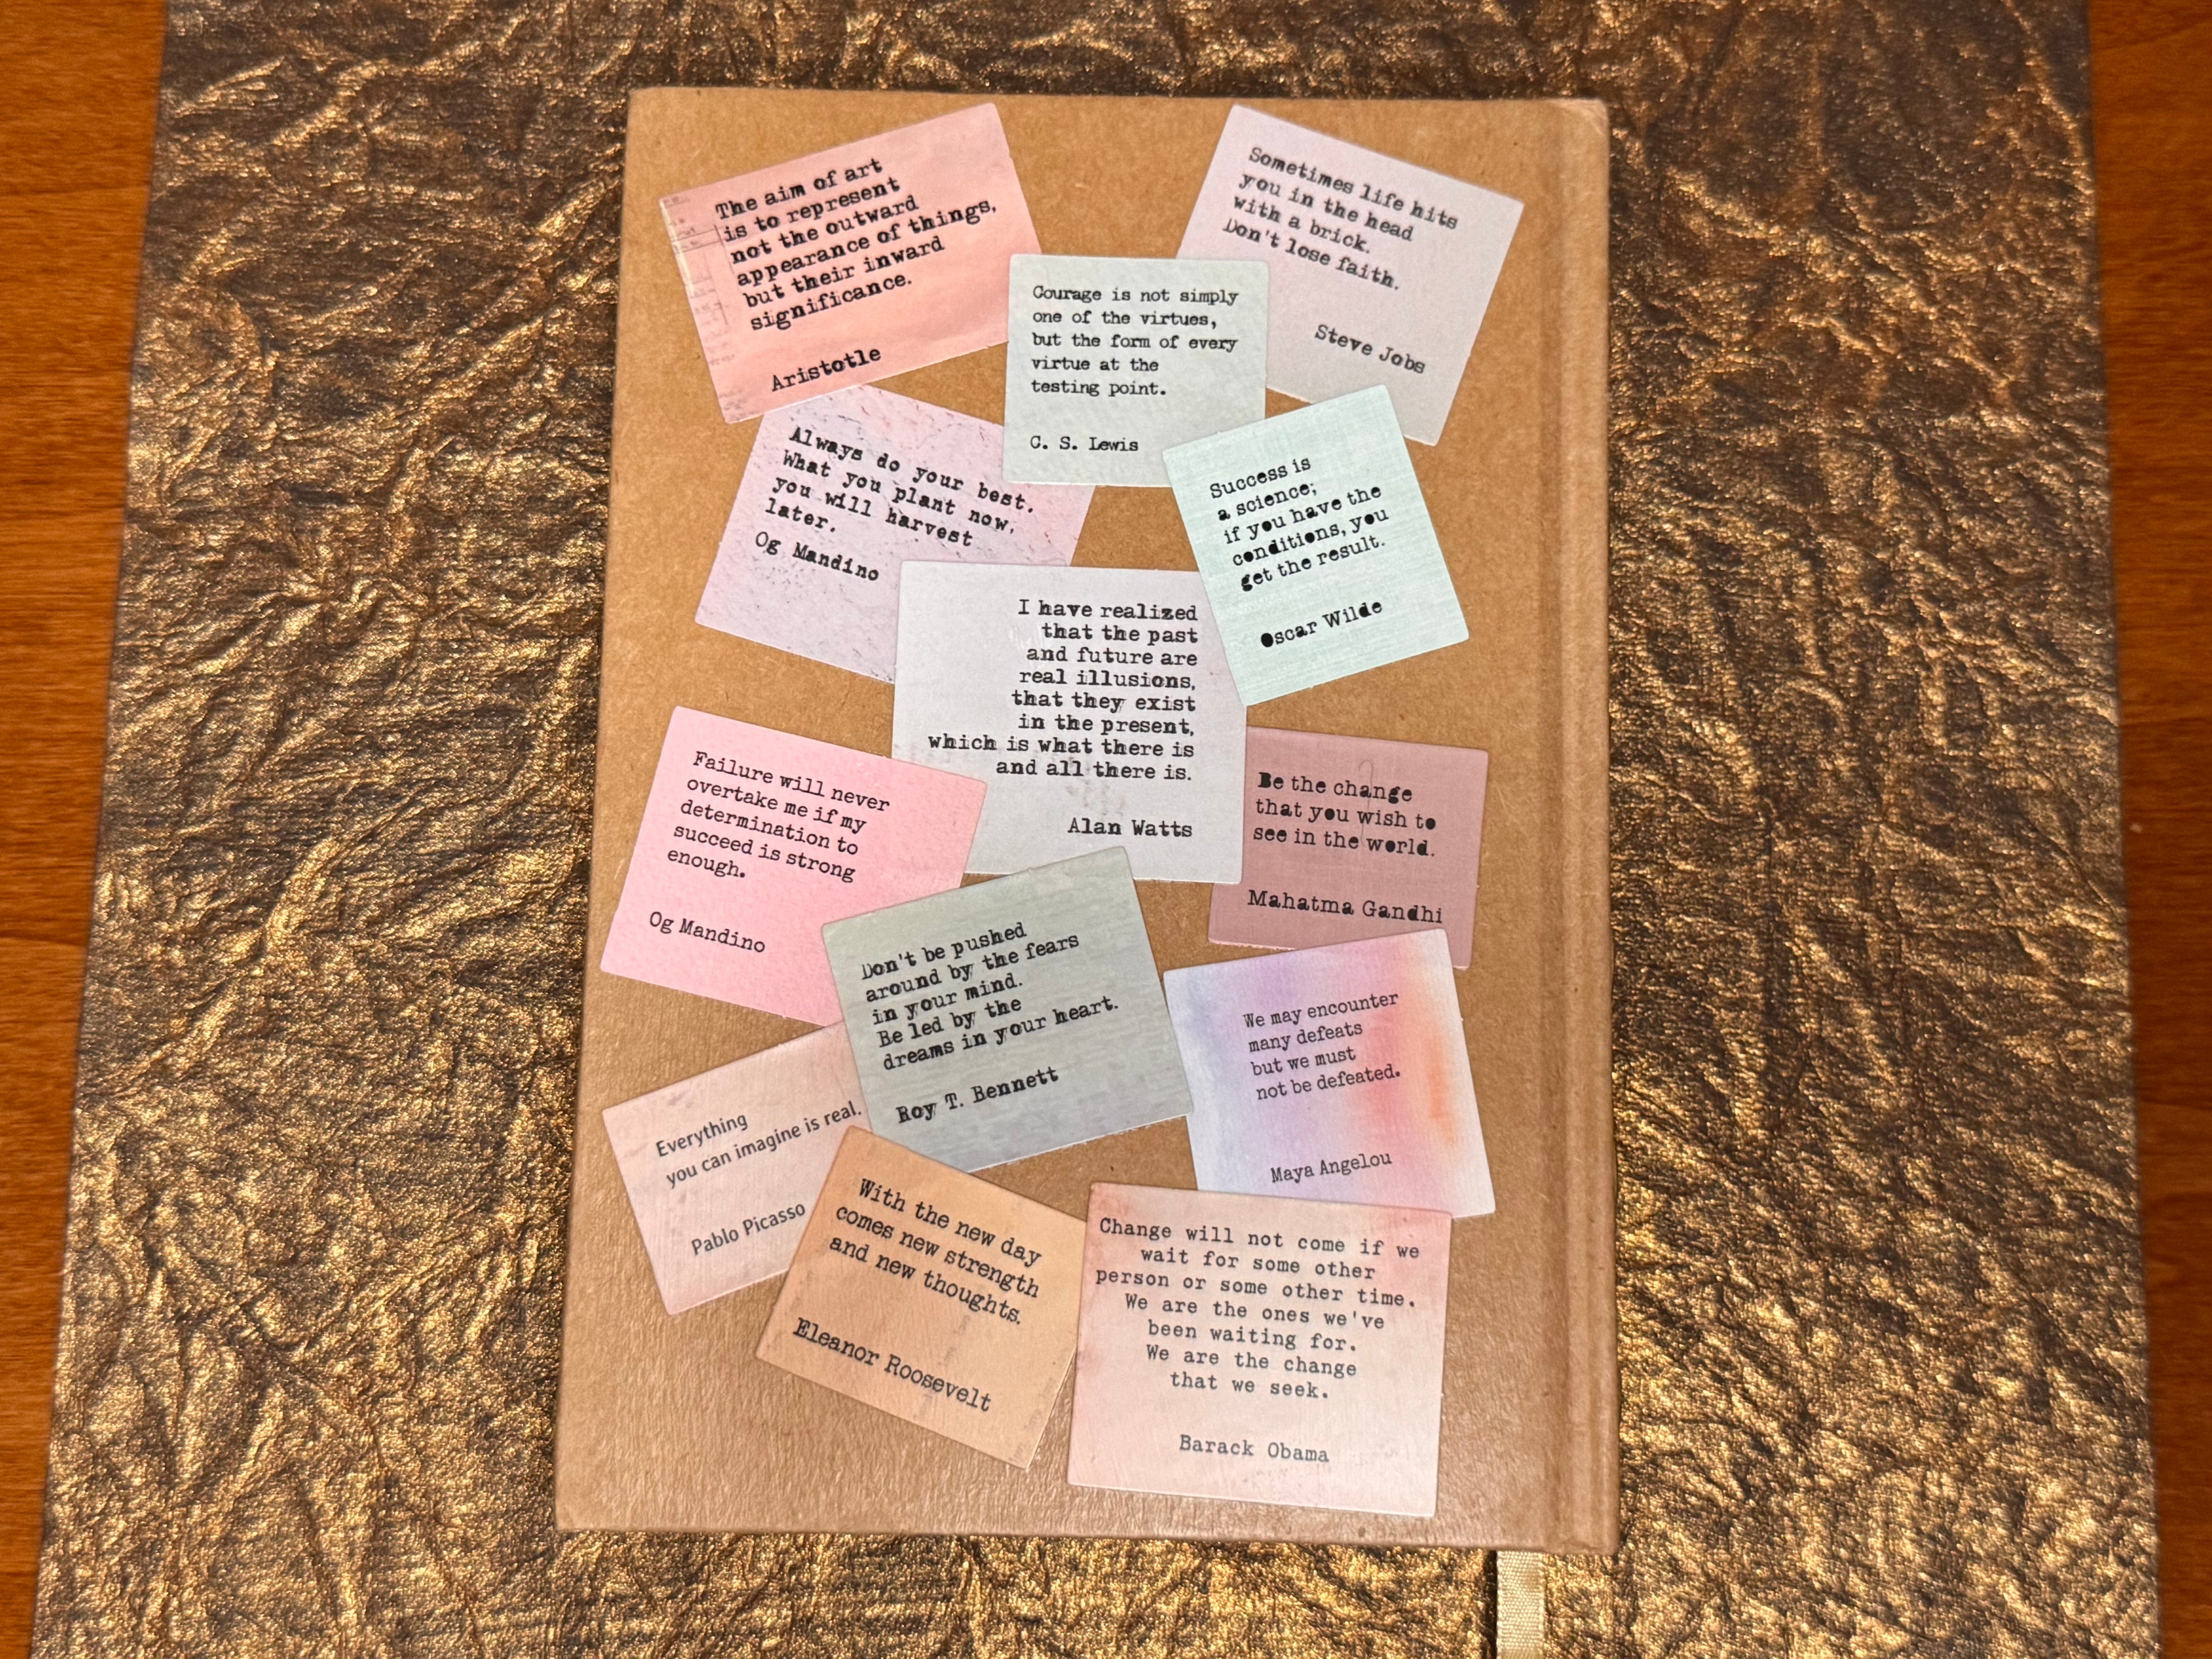 The aim of art
is to represent
not the outward
appearance of things,
but their inward
significance.
Aristotle
Sometimes life hits
you in the head
with a brick.
Don't lose faith.
Steve Jobs
Courage is not simply
one of the virtues,
but the form of every
virtue at the
testing point.
C. S. Lewis
Always do your best.
What you plant now,
you will harvest
later.
Og Mandino
Success is
a science;
if you have the
conditions, you
get the result.
Oscar Wilde
I have realized
that the past
and future are
real illusions,
that they exist
in the present,
which is what there is
and all there is.
Alan Watts
Failure will never
overtake me if my
determination to
succeed is strong
enough.
Og Mandino
Be the change
that you wish to
see in the world.
Mahatma Gandhi
Don't be pushed
around by the fears
in your mind.
Be led by the
dreams in your heart.
Roy T. Bennett
We may encounter
many defeats
but we must
not be defeated.
Maya Angelou
Everything
you can imagine is real.
Pablo Picasso
With the new day
comes new strength
and new thoughts.
Eleanor Roosevelt
Change will not come if we
wait for some other
person or some other time.
We are the ones we've
been waiting for.
We are the change
that we seek.
Barack Obama